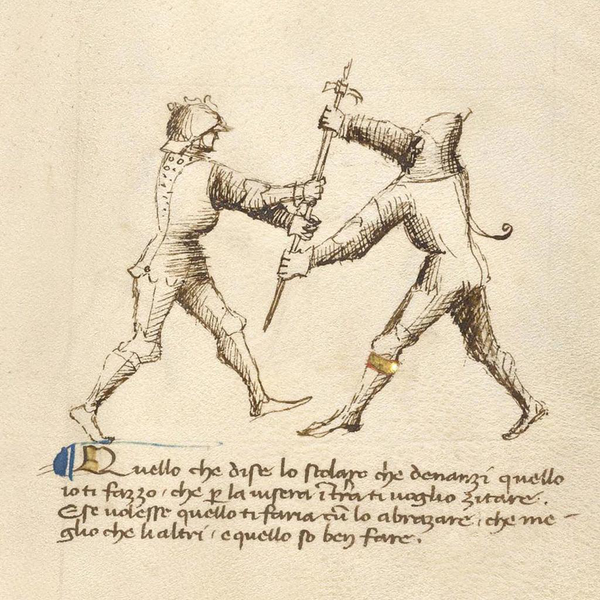 Quello che dise lo scolaro che denanzi quello
io ti fazzo, che p la visera i terra ti voglio zitare.
E se volesse quello ti faria cu lo abrazare, che me-
glio che li altri, e quello so ben fare.